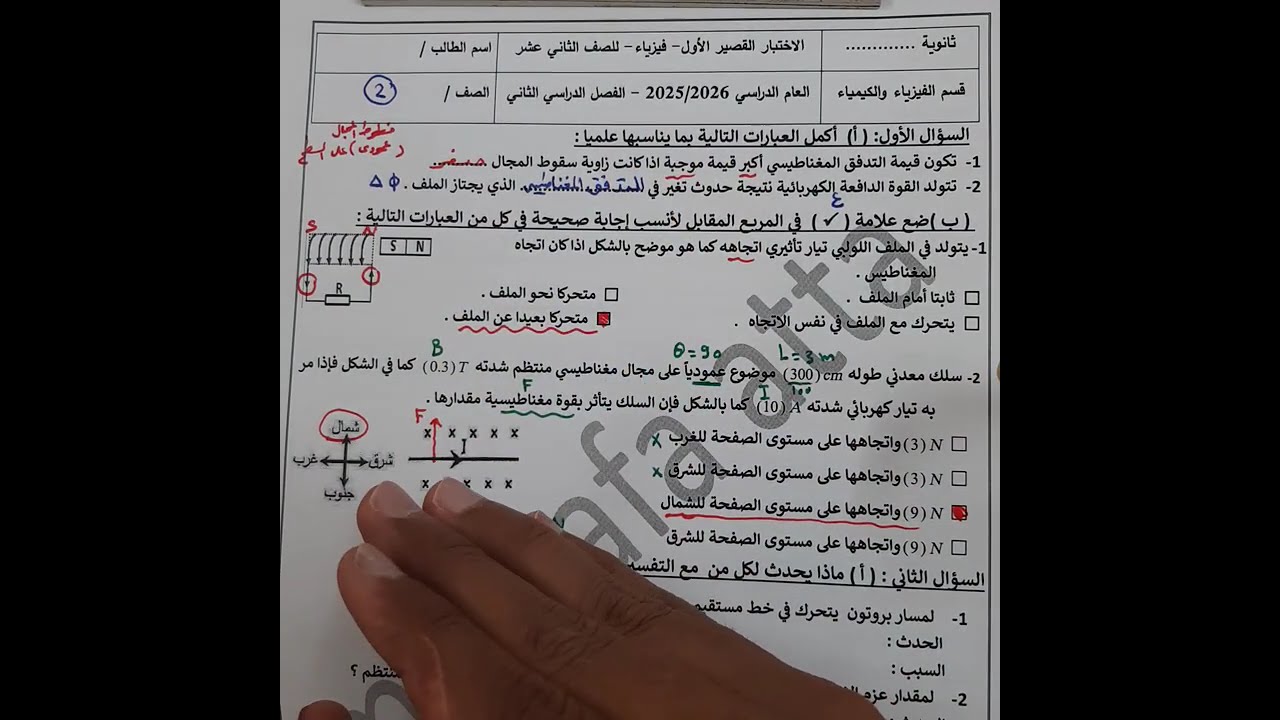 ثانوية .............
الاختبار القصير الأول- فيزياء- للصف الثاني عشر
اسم الطالب /
قسم الفيزياء والكيمياء
العام الدراسي 2025/2026 - الفصل الدراسي الثاني
الصف / 2
السؤال الأول: ( أ) أكمل العبارات التالية بما يناسبها علميا :
خطوط المجال
(عمودي) على السطح
1- تكون قيمة التدفق المغناطيسي أكبر قيمة موجبة اذا كانت زاوية سقوط المجال صفر
2- تتولد القوة الدافعة الكهربائية نتيجة حدوث تغير في التدفق المغناطيسي الذي يجتاز الملف . Δ Φ
( ب )ضع علامة ( ✓ ) في المربع المقابل لأنسب إجابة صحيحة في كل من العبارات التالية :
1- يتولد في الملف اللولبي تيار تأثيري اتجاهه كما هو موضح بالشكل اذا كان اتجاه
المغناطيس .
S N
S N
R
ثابتا أمام الملف .
متحركا نحو الملف .
يتحرك مع الملف في نفس الاتجاه .
متحركا بعيدا عن الملف .
B θ = 90 L = 3 m
2- سلك معدني طوله (300) cm موضوع عمودياً على مجال مغناطيسي منتظم شدته (0.3) T كما في الشكل فإذا مر
F I 100
به تيار كهربائي شدته (10) A كما بالشكل فإن السلك يتأثر بقوة مغناطيسية مقدارها .
(3) N واتجاهها على مستوى الصفحة للغرب x
(3) N واتجاهها على مستوى الصفحة للشرق x
(9) N واتجاهها على مستوى الصفحة للشمال
(9) N واتجاهها على مستوى الصفحة للشرق
F
x x x x x
I
x x x x
شمال
غرب شرق
جنوب
السؤال الثاني : ( أ ) ماذا يحدث لكل من مع
1- لمسار بروتون يتحرك في خط
الحدث :
السبب :
2- لمقدار عزم
منتظم ؟
afa atta